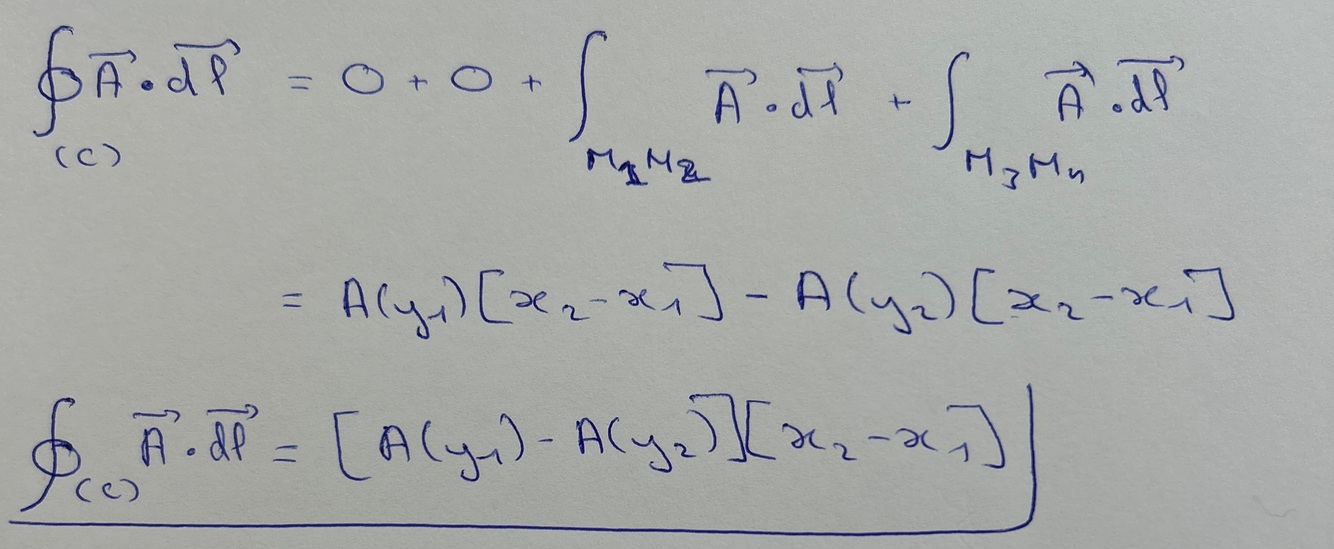 ∮(C) A⃗ · dl⃗ = 0 + 0 + ∫M₁M₂ A⃗ · dl⃗ + ∫M₃M₄ A⃗ · dl⃗
= A(y₁)[x₂-x₁] - A(y₂)[x₂-x₁]
∮(C) A⃗ · dl⃗ = [A(y₁) - A(y₂)][x₂-x₁]